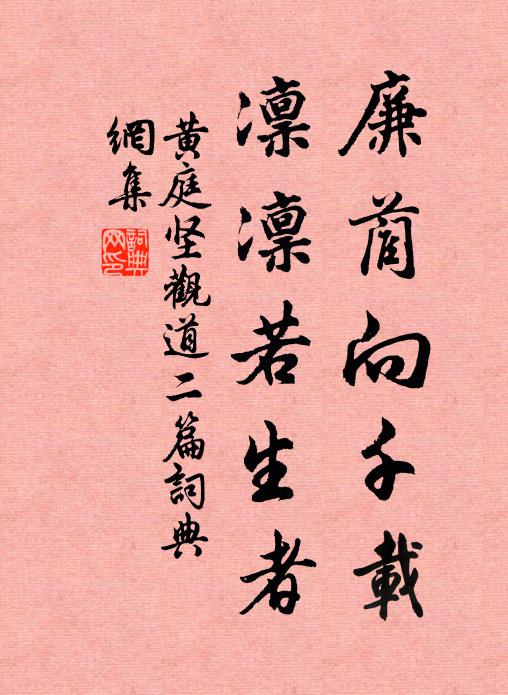 廉藺向千載
凛凛若生者
黄庭坚觀道二篇詞典
網集
詞典网印